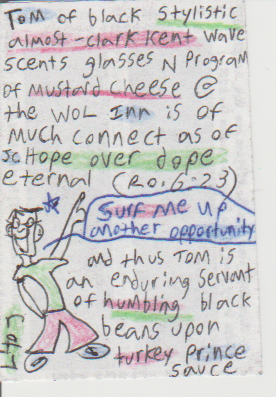 Tom of black stylistic
almost-clark kent wave
scents glasses N Program
of mustard cheese @
the WOL Inn is of
much connect as of
JC Hope over dope
eternal (Ro. 6:23)
Surf me up
another opportunity
and thus Tom is
an enduring servant
of humbling black
beans upon
turkey prince
sauce